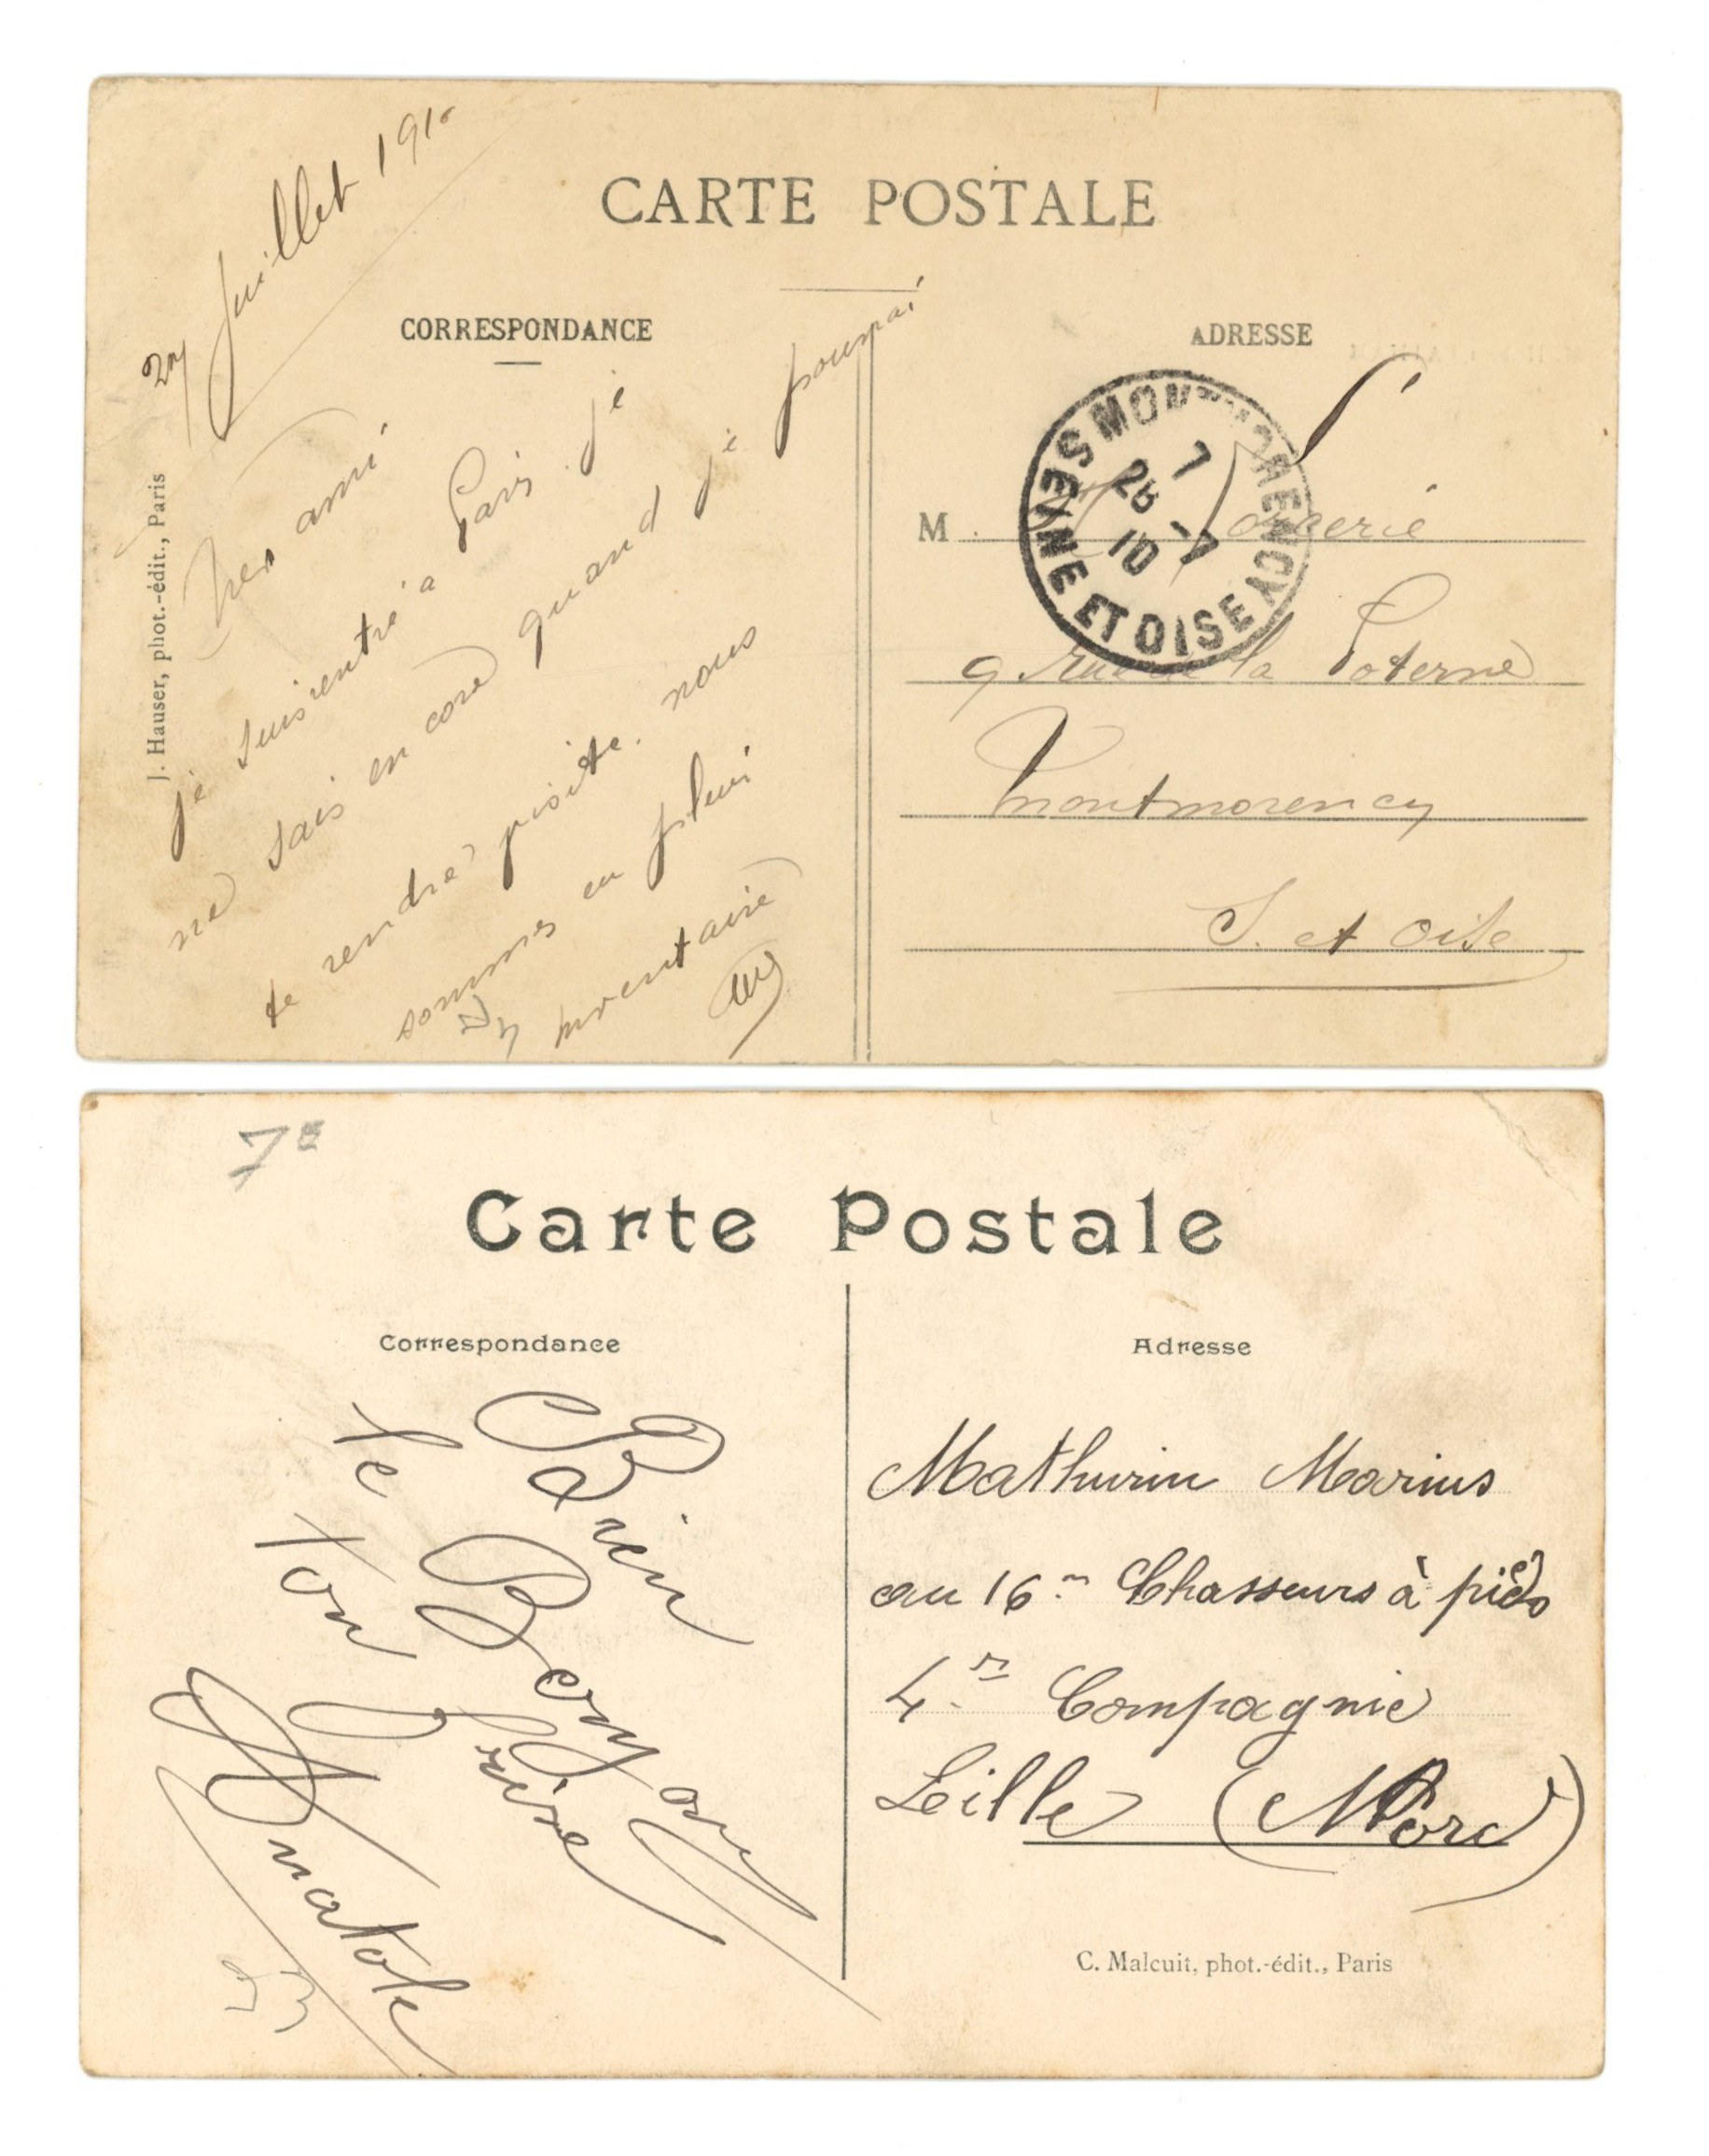 CARTE POSTALE
CORRESPONDANCE
ADRESSE
J. Hauser, phot.-édit., Paris
27 Juillet 1910
ami
je suis rentré a Paris. je
ne sais en core quand je pourrai
te rendre visite. nous
sommes en plein
inventaire
MONTMORENCY
SEINE ET OISE
7
26 - 7
10
M.
9 rue de la Poterne
Montmorency
S. et Oise
7e
Carte Postale
Correspondance
Adresse
Bien
le Bonjour
ton frère
Anatole
Mathurin Marius
au 16e Chasseurs à pied
4e Compagnie
Lille (Nord)
C. Malcuit, phot.-édit., Paris